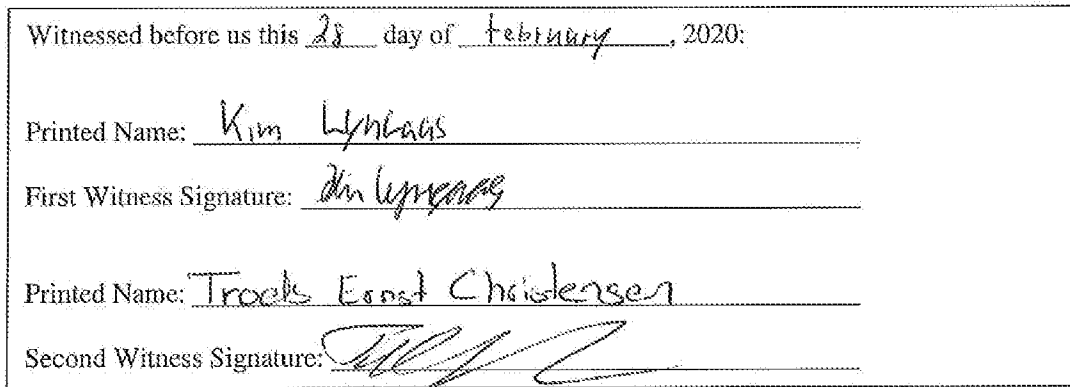 Witnessed before us this 28 day of february, 2020:
Printed Name: Kim
First Witness Signature:
Printed Name: Troels Ernst Christensen
Second Witness Signature: